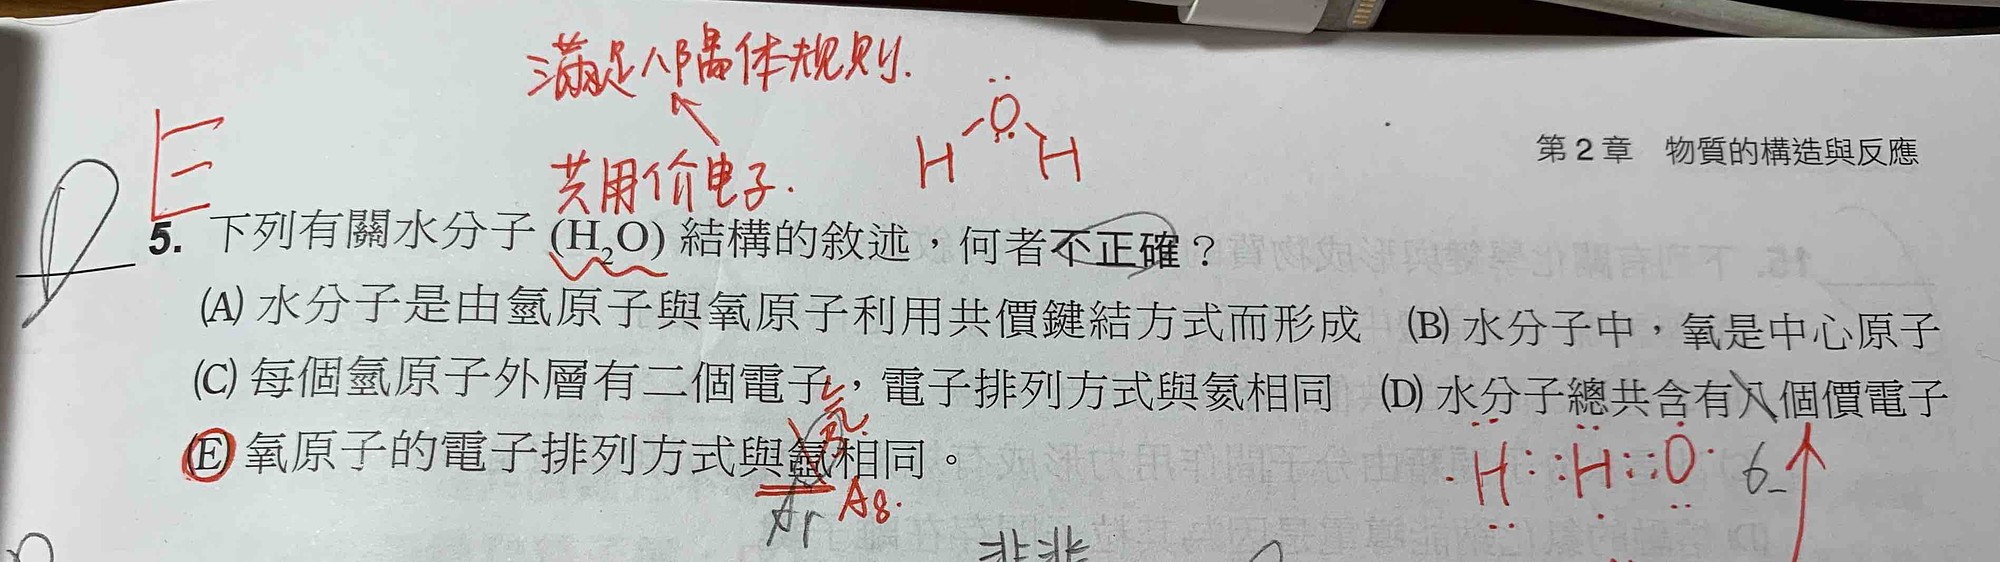 满足八隅体规则.
共用价电子.
O
H H
E
第 2 章 物質的構造與反應
D 5. 下列有關水分子 (H₂O) 結構的敘述，何者不正確？
(A) 水分子是由氫原子與氧原子利用共價鍵結方式而形成 (B) 水分子中，氧是中心原子
(C) 每個氫原子外層有二個電子，電子排列方式與氦相同 (D) 水分子總共含有八個價電子
(E) 氧原子的電子排列方式與氬相同。
Ar
H H O 6